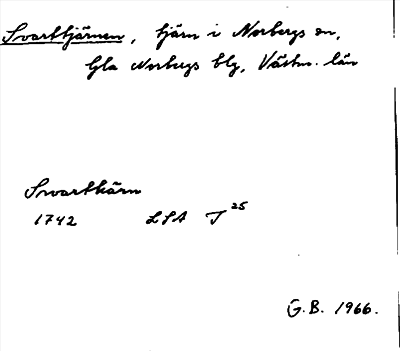 Svarttjärnen, tjärn i Norbergs sn,
Gla Norbergs blg, Västm. län
Swartkärn
1742 LSA T 25
G.B. 1966.